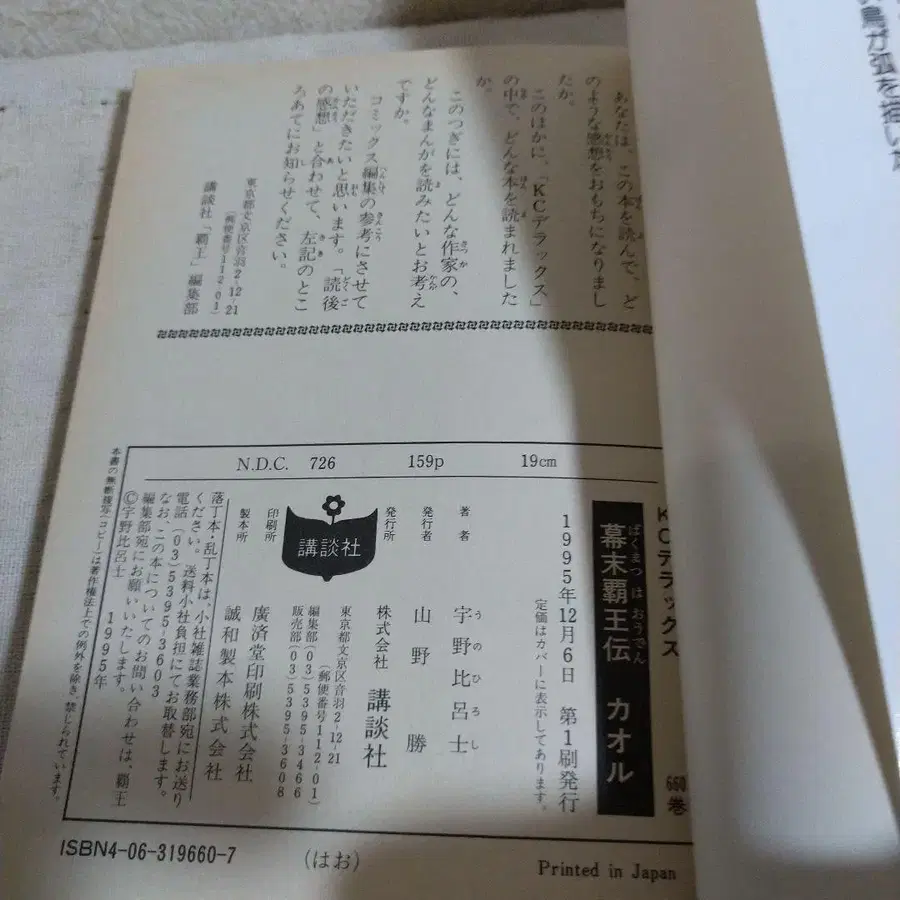 鳥が弧を描いた
あなたは、この本を読んで、ど
のような感想をおもちになりまし
たか。
このほかに、「KCデラックス」
の中で、どんな本を読まれました
か。
このつぎには、どんな作家の、
どんなまんがを読みたいとお考え
ですか。
コミックス編集の参考にさせて
いただきたいと思います。「読後
の感想」と合わせて、左記のとこ
ろあてにお知らせください。
東京都文京区音羽2-12-21
(郵便番号112-01)
講談社「覇王」編集部
N.D.C. 726 159p 19cm
KCデラックス
660巻
幕末覇王伝 カオル
ばくまつ は おうでん
1995年12月6日 第1刷発行
定価はカバーに表示してあります。
著者 宇野比呂士
うのひろし
発行者 山野 勝
発行所 株式会社 講談社
東京都文京区音羽2-12-21
(郵便番号112-01)
編集部(03)5395-3466
販売部(03)5395-3608
講談社
印刷所 廣済堂印刷株式会社
製本所 誠和製本株式会社
落丁本・乱丁本は、小社雑誌業務部宛にお送り
ください。送料小社負担にてお取替します。
電話(03)5395-3603
なお、この本についてのお問い合わせは、覇王
編集部宛にお願いいたします。
©宇野比呂士 1995年
本書の無断複写(コピー)は著作権法上での例外を除き、禁じられています。
ISBN4-06-319660-7
(はお)
Printed in Japan